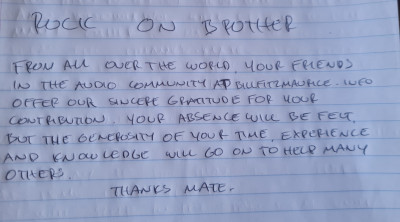 ROCK ON BROTHER
FROM ALL OVER THE WORLD, YOUR FRIENDS
IN THE AUDIO COMMUNITY AT BILLFITZMAURICE.INFO
OFFER OUR SINCERE GRATITUDE FOR YOUR
CONTRIBUTION. YOUR ABSENCE WILL BE FELT,
BUT THE GENEROSITY OF YOUR TIME, EXPERIENCE
AND KNOWLEDGE WILL GO ON TO HELP MANY
OTHERS.
THANKS MATE.